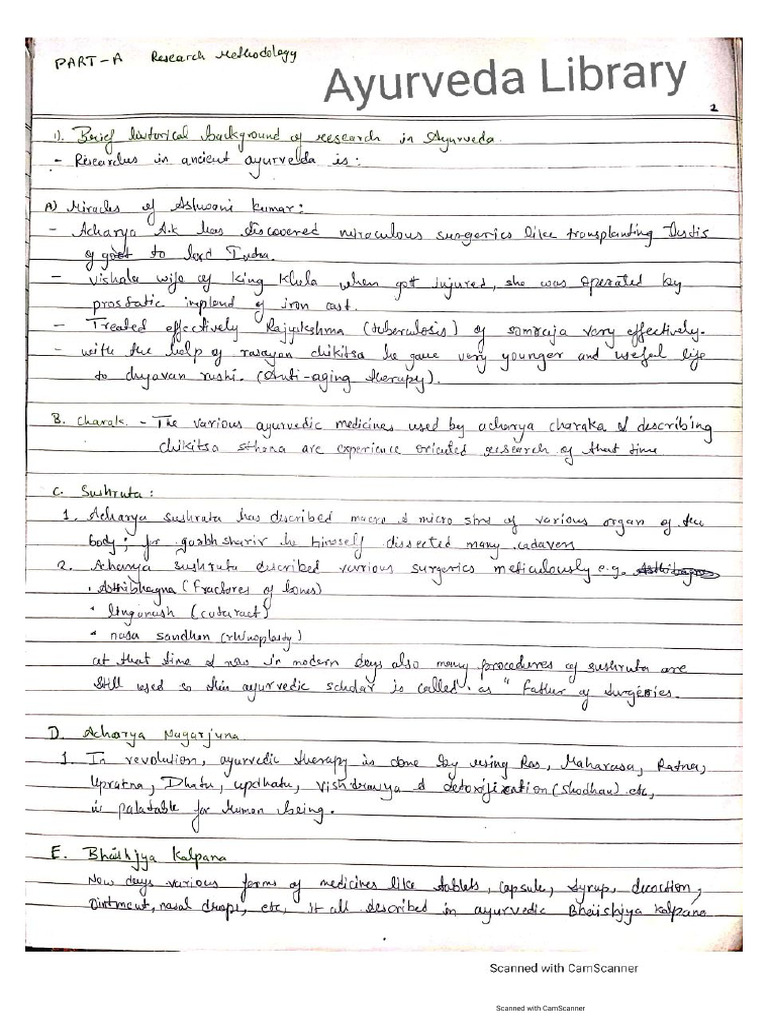 PART-A Research Methodology
Ayurveda Library
1
1). Brief historical background of research in Ayurveda.
- Researches in ancient ayurvelda is:
A) Miracles of Ashwani kumar:
- Acharya A.k has discovered miraculous surgeries like transplanting Testis
of goat to lord Indra.
- Vishala wife of King Khela when got injured, she was operated by
prostatic implend of iron cast.
- Treated effectively Rajyakshma (tuberculosis) of somraja very effectively.
- with the help of rasayan chikitsa he gave very younger and useful life
to chyavan rushi. (Anti-aging therapy).
B. Charak. - The various ayurvedic medicines used by acharya charaka & describing
chikitsa sthana are experience oriented research of that time
C. Sushruta:
1. Acharya sushruta has discribed macro & micro strs of various organ of the
body; for garbh sharir he himself dissected many cadavers
2. Acharya sushruta described various surgeries meticulously e.g.
• Asthibhagna (fractores of bones)
• linganash (cataract)
• nasa sandhan (rhinoplasty)
at that time & now in modern days also many procedures of sushruta are
still used so this ayurvedic scholar is called as "father of surgeries.
D. Acharya Nagarjuna
1. In revolution, ayurvedic therapy is done by using Ras, Maharasa, Ratna,
Upratna, Dhatu, updhatu, vishdravya & detoxification (shodhan) etc,
is palatable for human being.
E. Bhaishjya Kalpana
Now days various forms of medicines like tablets, capsule, syrup, decoction,
Ointment, nasal drops, etc, it all described in ayurvedic Bhaiishjya kalpana
Scanned with CamScanner
Scanned with CamScanner